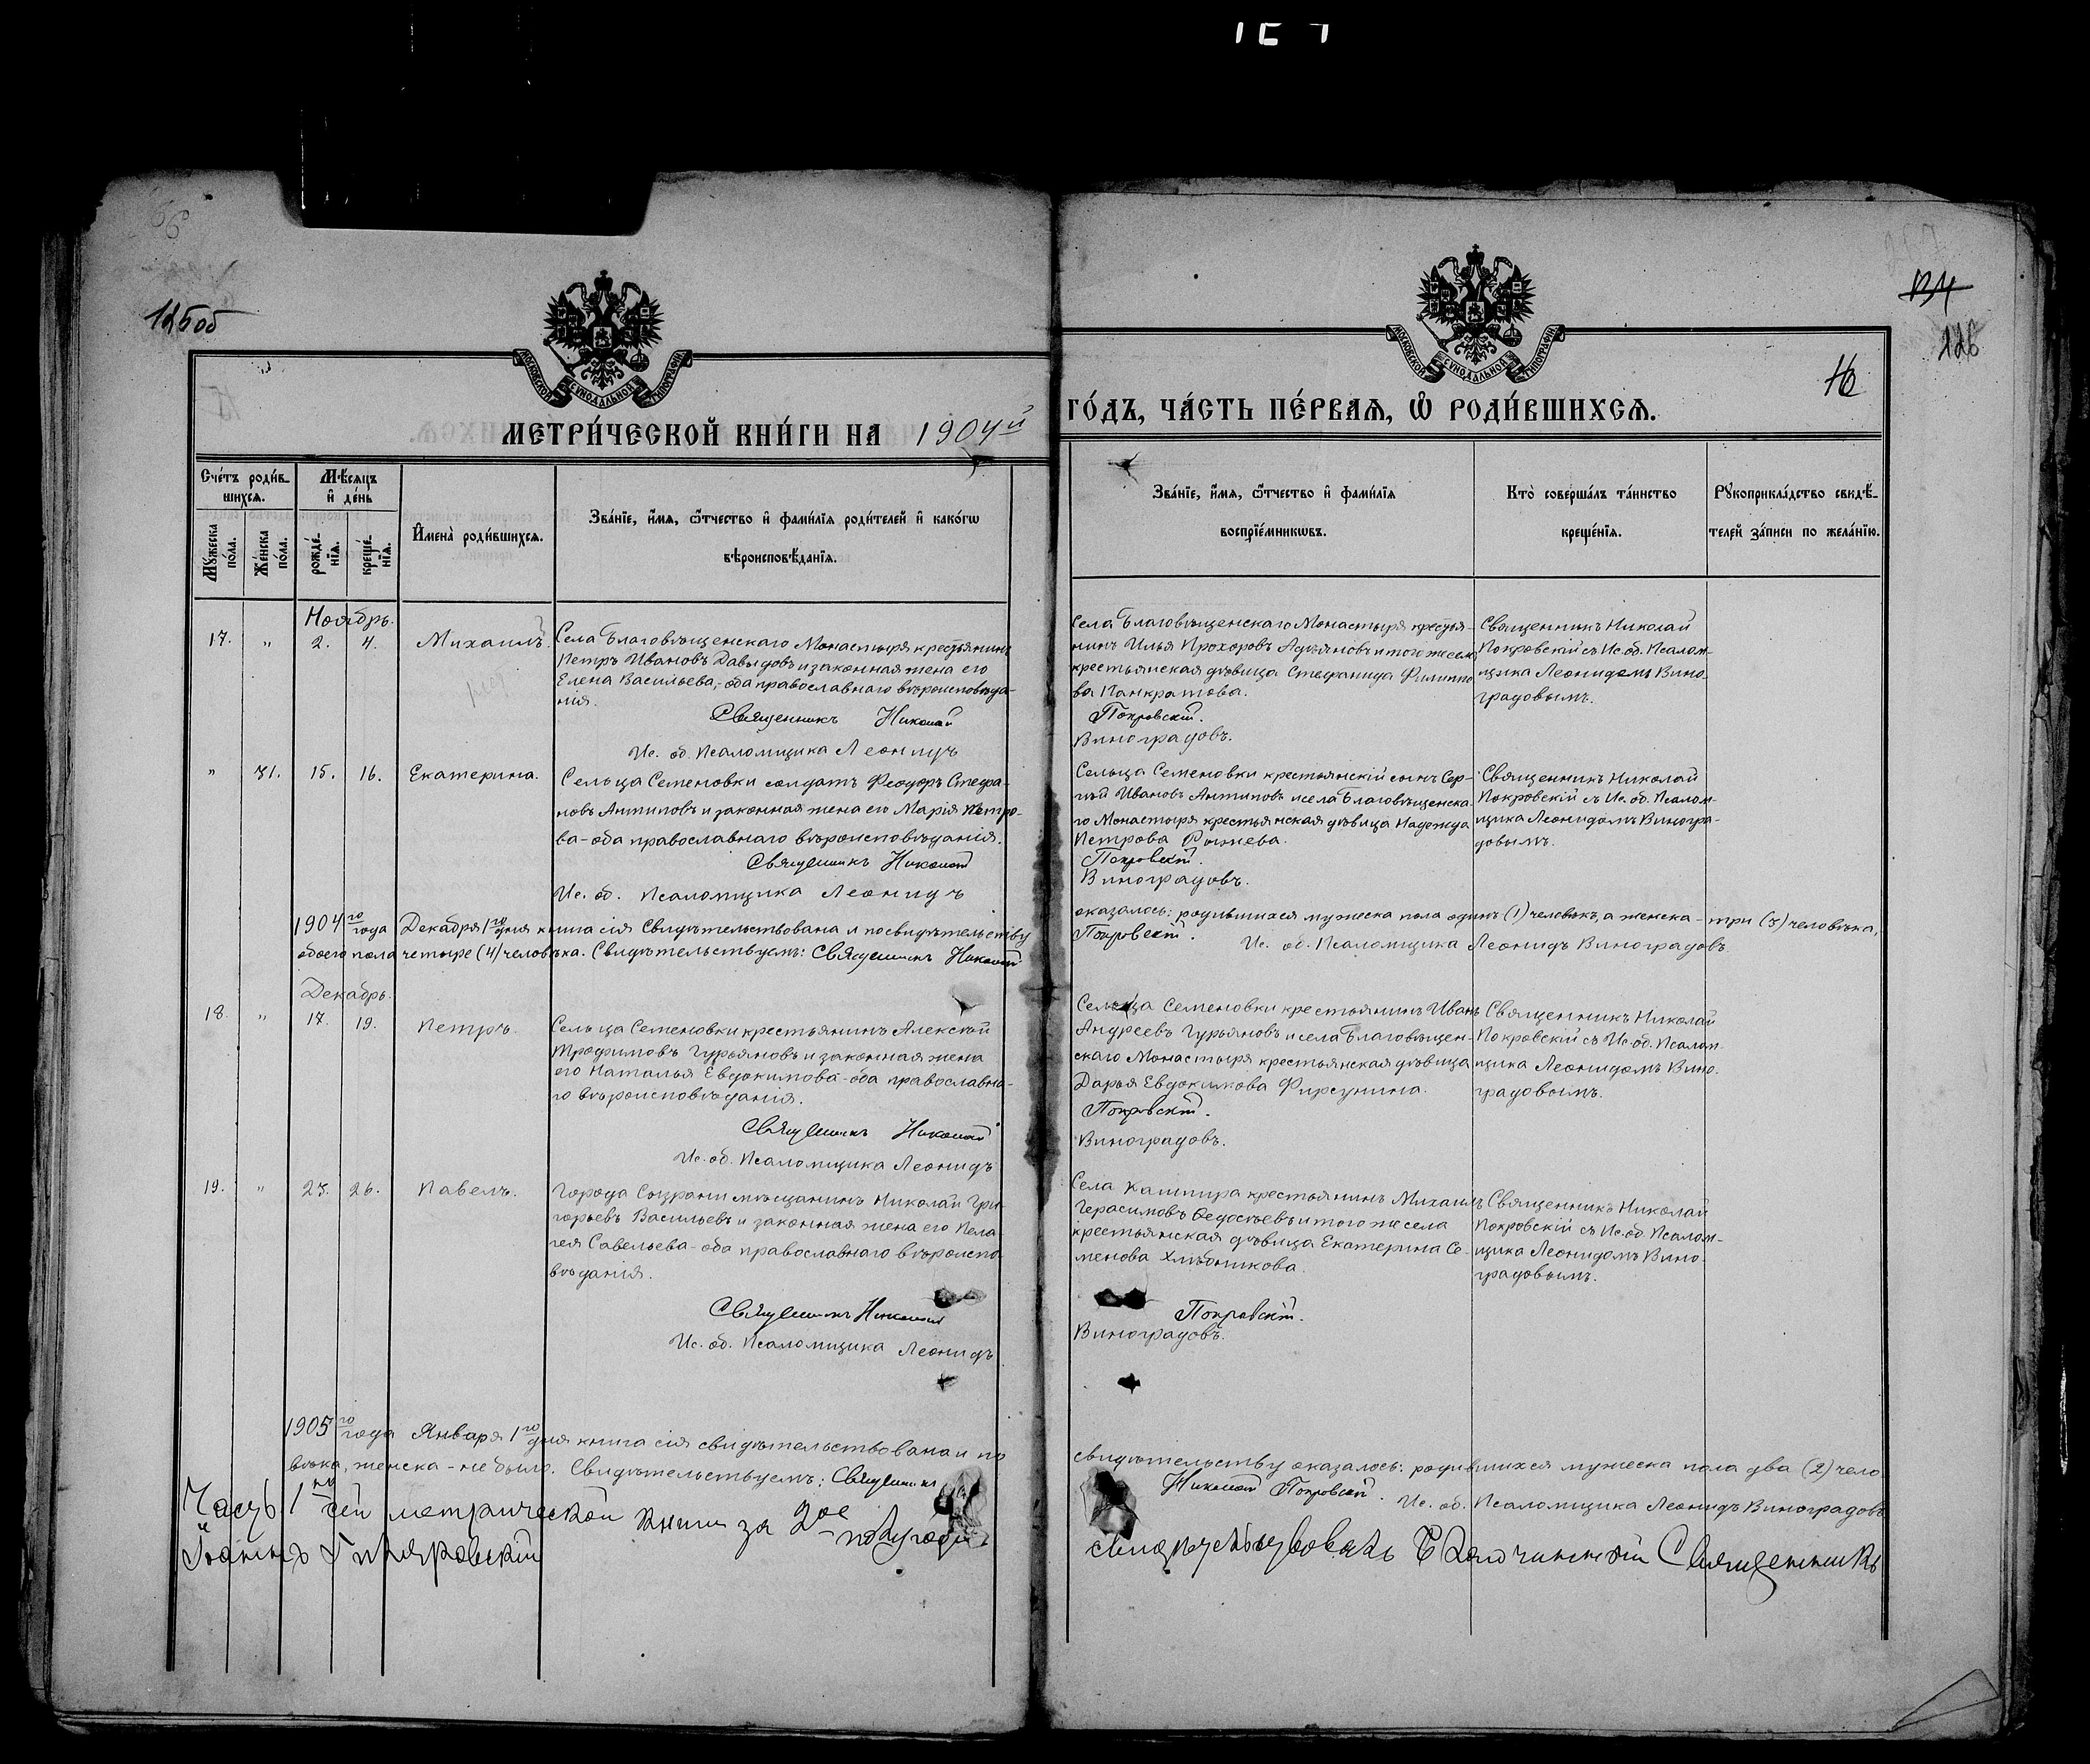 125об
124
126
16
МОСКОВСКОЙ СУНОДАЛЬНОЙ ТИПОГРАФІИ
МОСКОВСКОЙ СУНОДАЛЬНОЙ ТИПОГРАФІИ
МЕТРИ́ЧЕСКОЙ КНИ́ГИ НА 1904й
ГО́ДЪ, ЧА́СТЬ ПЕ́РВАЯ, Ѡ РОДИ́ВШИХСЯ.
Счетъ роди́в-
шихся.
Мѣсяцъ
и де́нь
Му́жеска
по́ла.
Же́нска
по́ла.
рожде́-
нія.
креще́-
нія.
Имена̀ роди́вшихся.
Зва́ніе, и́мя, ѻ́тчество и фами́лія роди́телей и како́гѡ
вѣроисповѣ́данія.
Зва́ніе, и́мя, ѻ́тчество и фами́лія
воспріе́мникѡвъ.
Кто̀ соверша́лъ та́инство
креще́нія.
Рукоприкла́дство свидѣ́-
телей за́писи по жела́нію.
Ноябрь.
17. " 2. 4. Михаилъ.
Села Благовѣщенскаго Монастыря крестьянинъ
Петръ Ивановъ Давыдовъ и законная жена его
Елена Васильева,-оба православнаго вѣроисповѣда-
нія.
Священникъ Николай
Ис. об. Псаломщика Леонидъ
Села Благовѣщенскаго Монастыря крестья-
нинъ Илья Прохоровъ Адѣяновъ и того же села
крестьянская дѣвица Стефанида Филиппо
ва Панкратова.
Покровскій.
Виноградовъ.
Священникъ Николай
Покровскій съ Ис. об. Псалом-
щика Леонидомъ Вино-
градовымъ.
" 31. 15. 16. Екатерина.
Сельца Семеновки солдатъ Феодоръ Стефа-
новъ Антиповъ и законная жена его Марія Петро-
ва-оба православнаго вѣроисповѣданія.
Священникъ Николай
Ис. об. Псаломщика Леонидъ
Сельца Семеновки крестьянскій сынъ Сер-
гѣй Ивановъ Антиповъ и села Благовѣщенска-
го Монастыря крестьянская дѣвица Надежда
Петрова
Покровскій.
Виноградовъ.
Священникъ Николай
Покровскій съ Ис. об. Псалом-
щика Леонидомъ Виногра-
довымъ.
1904го года Декабря 1го дня книга сія Свидѣтельствована и по свидѣтельству
оказалось: родившихся мужеска пола одинъ (1) человѣкъ, а женска - три (3) человѣка,
обоего пола четыре (4) человѣка. Свидѣтельствуемъ: Священникъ Николай
Покровскій. Ис. об. Псаломщика Леонидъ Виноградовъ
Декабрь.
18. " 17. 19. Петръ.
Сельца Семеновки крестьянинъ Алексѣй
Трофимовъ Гурьяновъ и законная жена
его Наталья Евдокимова-оба православна-
го вѣроисповѣданія.
Священникъ Николай
Ис. об. Псаломщика Леонидъ
Сельца Семеновки крестьянинъ Иванъ
Андреевъ Гурьяновъ и села Благовѣщен-
скаго Монастыря крестьянская дѣвица
Дарья Евдокимова Фирсунина.
Покровскій.
Виноградовъ.
Священникъ Николай
Покровскій съ Ис. об. Псалом-
щика Леонидомъ Вино-
градовымъ.
19. " 23. 26. Павелъ.
Города Сызрани мѣщанинъ Николай Гри-
горьевъ Васильевъ и законная жена его Пела-
гея Савельева-оба православнаго вѣроиспо-
вѣданія.
Священникъ Николай
Ис. об. Псаломщика Леонидъ
Села Кашпира крестьянинъ Михаилъ
Герасимовъ Ѳедосѣевъ и того же села
крестьянская дѣвица Екатерина Се-
менова Хлѣбникова.
Покровскій.
Виноградовъ.
Священникъ Николай
Покровскій съ Ис. об. Псалом-
щика Леонидомъ Вино-
градовымъ.
1905го года Января 1го дня книга сія свидѣтельствована и по
свидѣтельству оказалось: родившихся мужеска пола два (2) чело
вѣка, женска - не было. Свидѣтельствуемъ: Священникъ
Николай Покровскій. Ис. об. Псаломщика Леонидъ Виноградовъ
Часть 1ю сей метрической книги за 2ое полугодіе
свидѣтельствовалъ Благочинный Священникъ
Іоаннъ